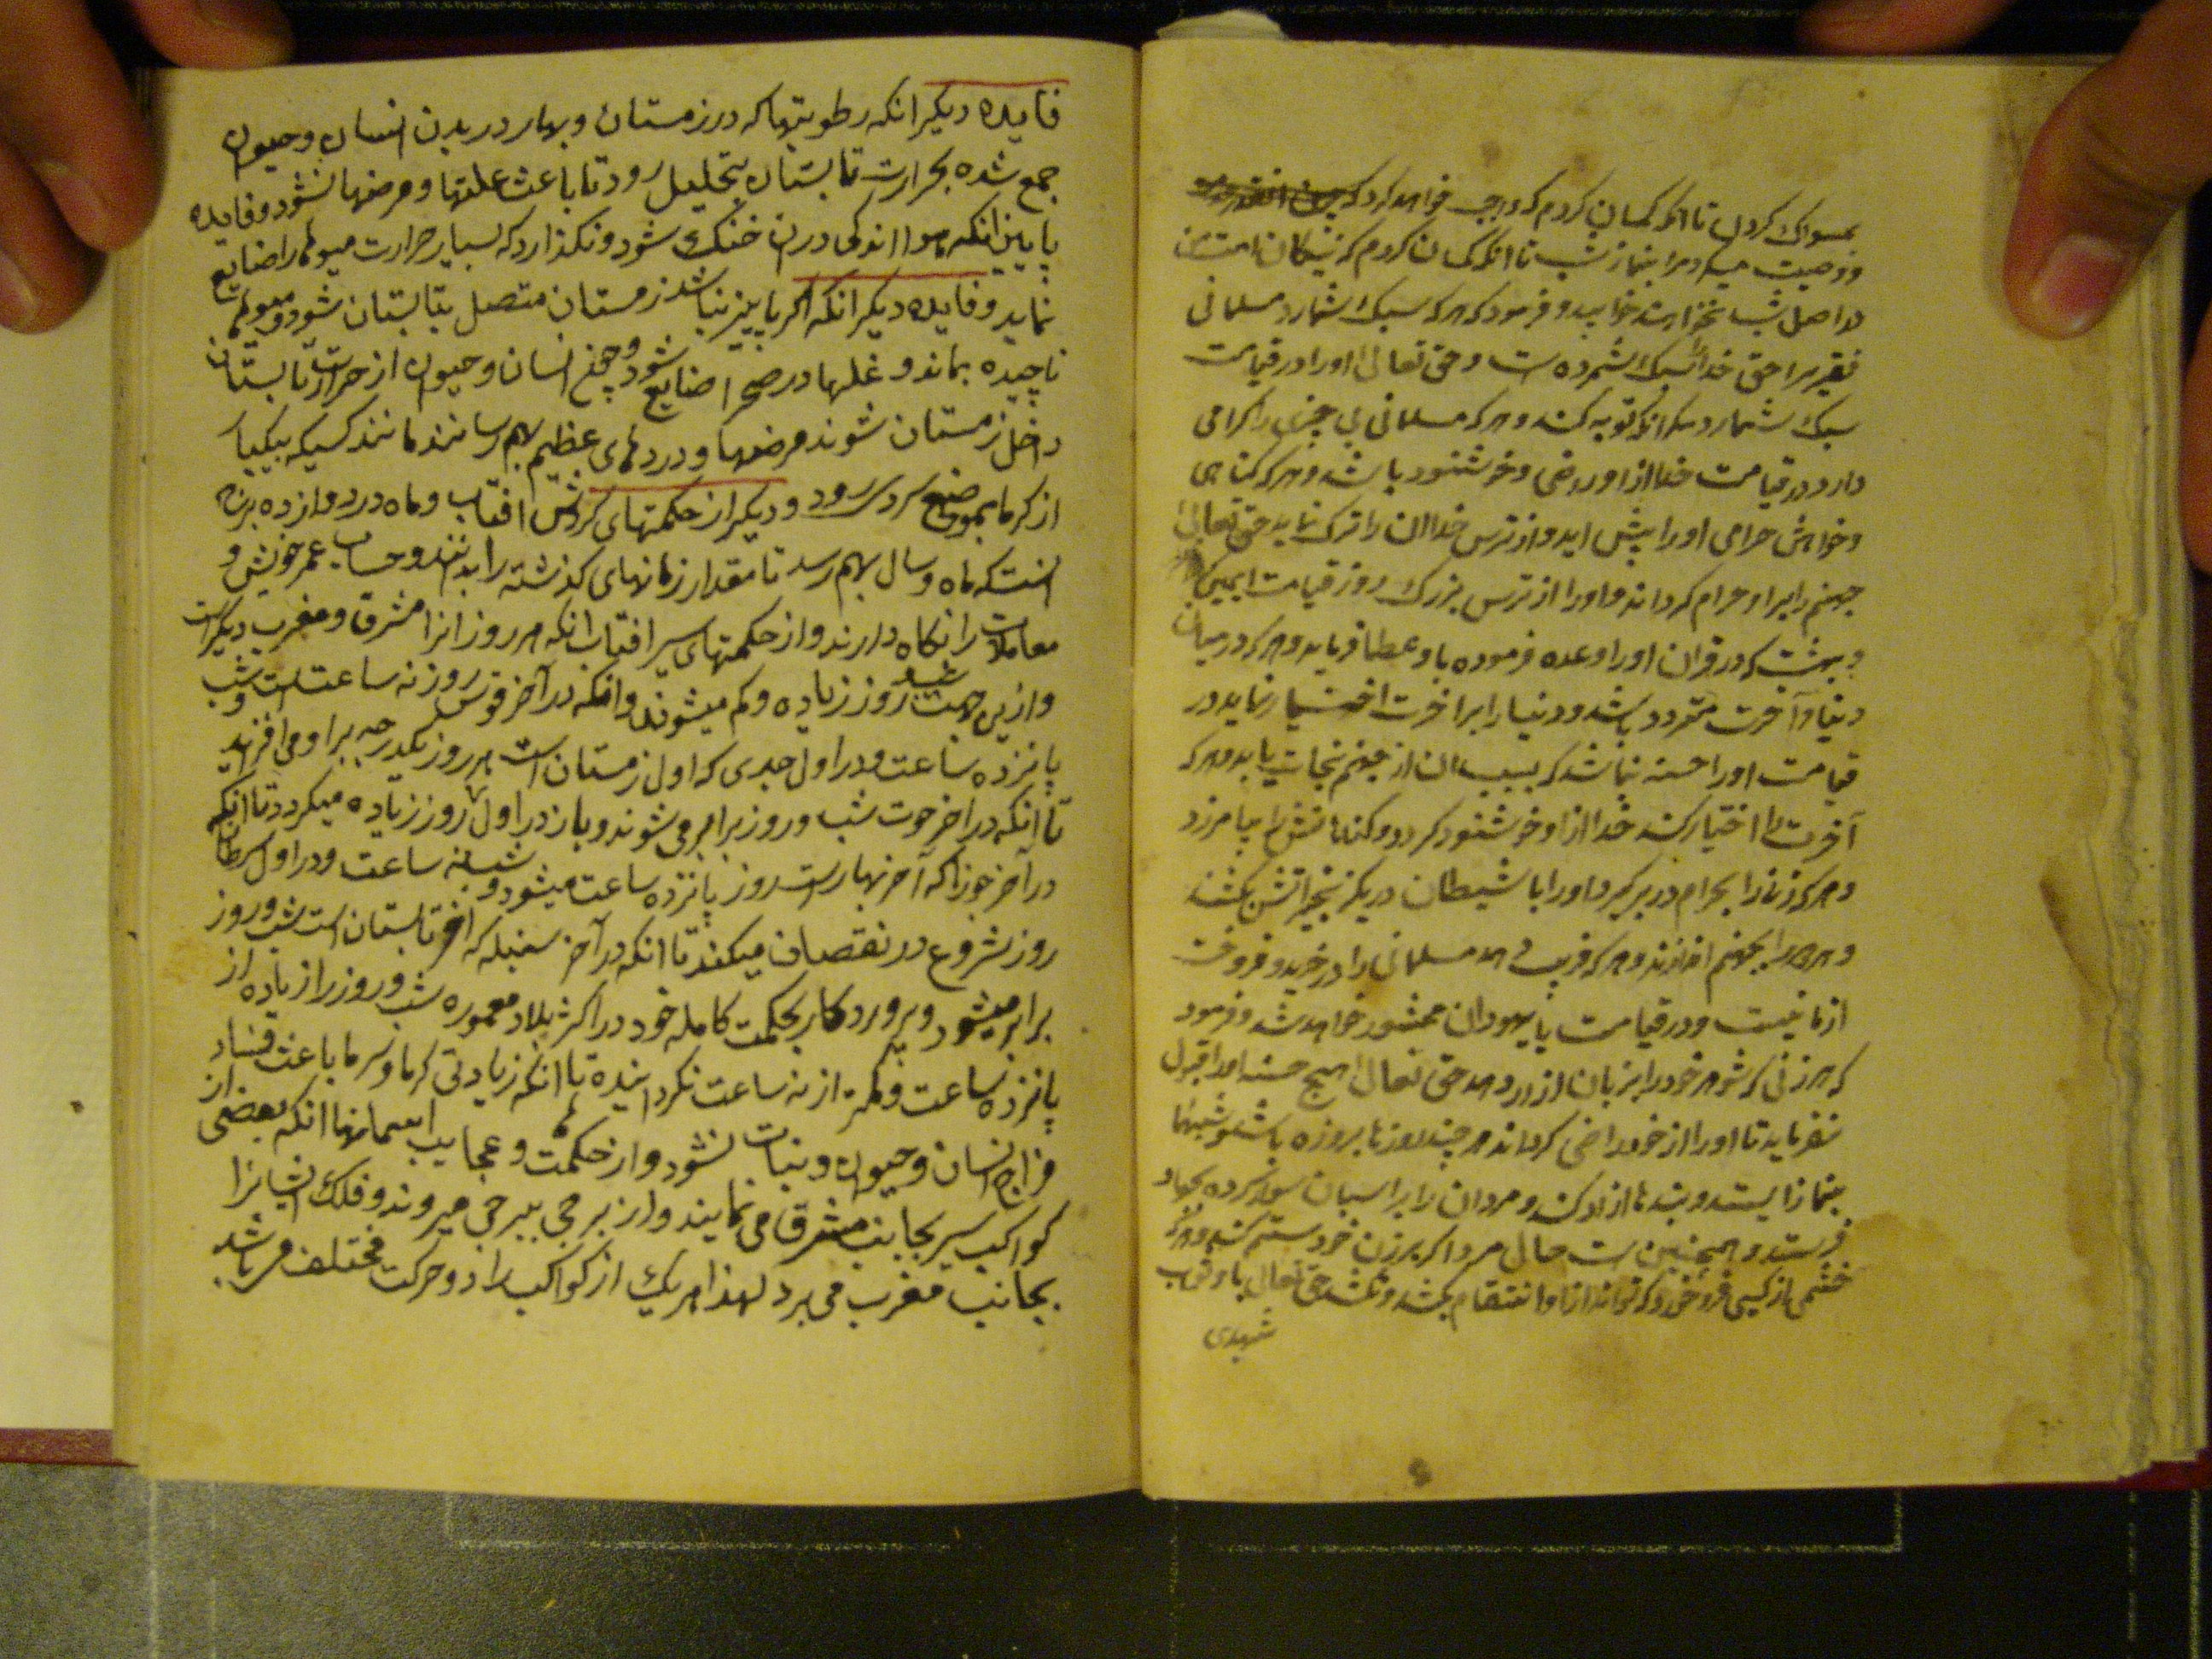 بمسواک کردن تا انکه کمان کردم که واجب خواهد کرد که
و وصیت میکرد مرا بنماز شب تا انکه کمان کردم که نیکان امت من
در اصل شب نخواهند خوابید و فرمود که هر که سبک شمارد مسلمانی
فقیر را حق خدا سبک شمرده است و حق تعالی او را در قیامت
سبک شمارد مکر انکه توبه کند و هر که مسلمانی بی چیز را کرامی
دارد در قیامت خدا از او راضی و خوشنود باشد و هر که کناهی
و خواهش حرامی او را پیش اید و از ترس خدا ان را ترک نماید حق تعالی
جهنم را بر او حرام کرداند و او را از ترس بزرک روز قیامت ایمن کند
و بهشت که در قران او را وعده فرموده باو عطا فرماید و هر که در میان
دنیا و آخرت متردد باشد و دنیا را بر اخرت اختیار نماید در
قیامت او را حسنه نباشد که بسبب ان از جهنم نجات یابد و هر که
آخرت را اختیار کند خدا از او خوشنود کردد و کناهانش را بیامرزد
و هر که زنا را بحرام در بر کیرد او را با شیطان در یک زنجیر اتش بکشند
و هر دو را بجهنم اندازند و هر که فریب دهد مسلمانی را در خرید و فروخت
از ما نیست و در قیامت با یهودان محشور خواهد شد و فرمود
که هر زنی که شوهر خود را بزبان ازار دهد حق تعالی هیچ حسنه او را قبول
نفرماید تا او را از خود راضی کرداند هر چند روزها بروزه باشد و شبها
بنماز ایستد و بندها ازاد کند و مردان را بر اسبان سوار کرده بجهاد
فرستد و همچنین است حال مرد اکر بر زن خود ستم کند و هر که
خشمی از کسی فرو خورد که تواند از او انتقام بکشد و نکشد حق تعالی باو ثواب
شهیدی
فایده دیکر انکه رطوبتها که در زمستان و بهار در بدن انسان و حیوان
جمع شده بحرارت تابستان بتحلیل رود تا باعث علتها و مرضها نشود و فایده
پاییز انکه هوا اندکی در ان خنک شود و نکذارد که بسیار حرارت میوها را ضایع
نماید و فایده دیکر انکه اکر پاییز نباشد زمستان متصل بتابستان شود و میوها
ناچیده بماند و غلها در صحرا ضایع شود و چهنع انسان و حیوان از حرارت تابستان
داخل زمستان شوند مرضها و دردهای عظیم بهم رسانند مانند کسیکه بیکبار
از کرما بموضع سردی رود و دیکر از حکمتهای کردش افتاب و ماه در دوازده برج
انست که ماه و سال بهم رسد تا مقدار زمانهای کذشته را بدانند و حساب عمر خویش و
معاملات را نکاه دارند و از حکمتهای سیر افتاب انکه هر روز انرا مشرق و مغرب دیکر است
و ازین جهت شب و روز زیاده و کم میشوند و انکه در آخر قوس روز نه ساعت است و شب
پانزده ساعت و در اول جدی که اول زمستان است هر روز یکدرجه بر او می افزاید
تا انکه در اخر حوت شب و روز برابر می شوند و باز در اول روز زیاده میکردد تا انکه
در آخر جوزا که آخر بهار است روز پانزده ساعت میشود و شب نه ساعت و در اول سرطان
روز شروع در نقصان میکند تا انکه در آخر سنبله که اخر تابستان است شب و روز
برابر میشود و پروردکار بحکمت کامله خود در اکثر بلاد معموره شب و روز را زیاده از
پانزده ساعت و کمتر از نه ساعت نکردانیده تا انکه زیادتی کرما و سرما باعث فساد
مزاج انسان و حیوان و نبات نشود و از حکمت ها و عجایب اسمانها انکه بعضی از
کواکب سیر بجانب مشرق می نمایند و از برجی ببرجی میروند و فلک ایشانرا
بجانب مغرب می برد لهذا هر یک از کواکب را دو حرکت مختلف می باشد